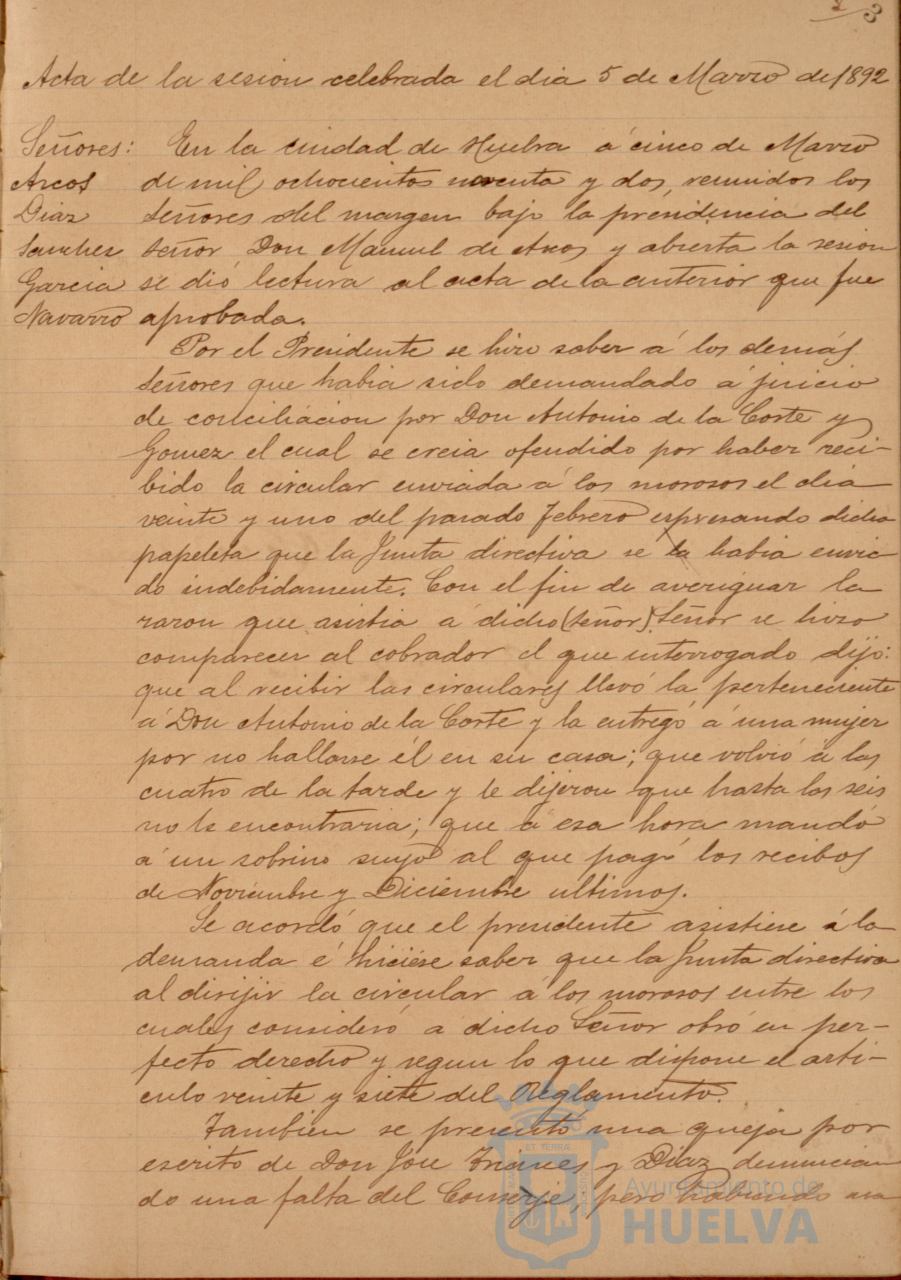 3
Acta de la sesion celebrada el dia 5 de Marzo de 1892
Señores:
Arcos
Diaz
Sanchez
Garcia
Navarro
En la ciudad de Huelva á cinco de Marzo
de mil ochocientos noventa y dos, reunidos los
señores del margen bajo la presidencia del
señor Don Manuel de Arcos y abierta la sesion
se dió lectura al acta de la anterior que fue
aprobada.
Por el Presidente se hizo saber á los demás
señores que habia sido demandado á juicio
de conciliacion por Don Antonio de la Corte y
Gomez el cual se creia ofendido por haber reci-
bido la circular enviada á los morosos el dia
veinte y uno del pasado Febrero espresando dicha
papeleta que la Junta directiva se la habia envia
do indebidamente. Con el fin de averiguar la
razon que asistia á dicho (señor) Señor se hizo
comparecer al cobrador el que interrogado dijo:
que al recibir las circulares llevó la perteneciente
á Don Antonio de la Corte y la entregó á una mujer
por no hallarse él en su casa; que volvió á las
cuatro de la tarde y le dijeron que hasta las seis
no le encontraria; que á esa hora mandó
á un sobrino suyo al que pagó los recibos
de Noviembre y Diciembre ultimos.
Se acordó que el presidente asistiese á la
demanda é hiciese saber que la Junta directiva
al dirijir la circular á los morosos entre los
cuales consideró á dicho Señor obró en per-
fecto derecho y segun lo que dispone el arti-
culo veinte y siete del Reglamento.
Tambien se presentó una queja por
escrito de Don Jose Diaz denuncian
do una falta del Conserje, pero habiendo una
Ayuntamiento de
HUELVA